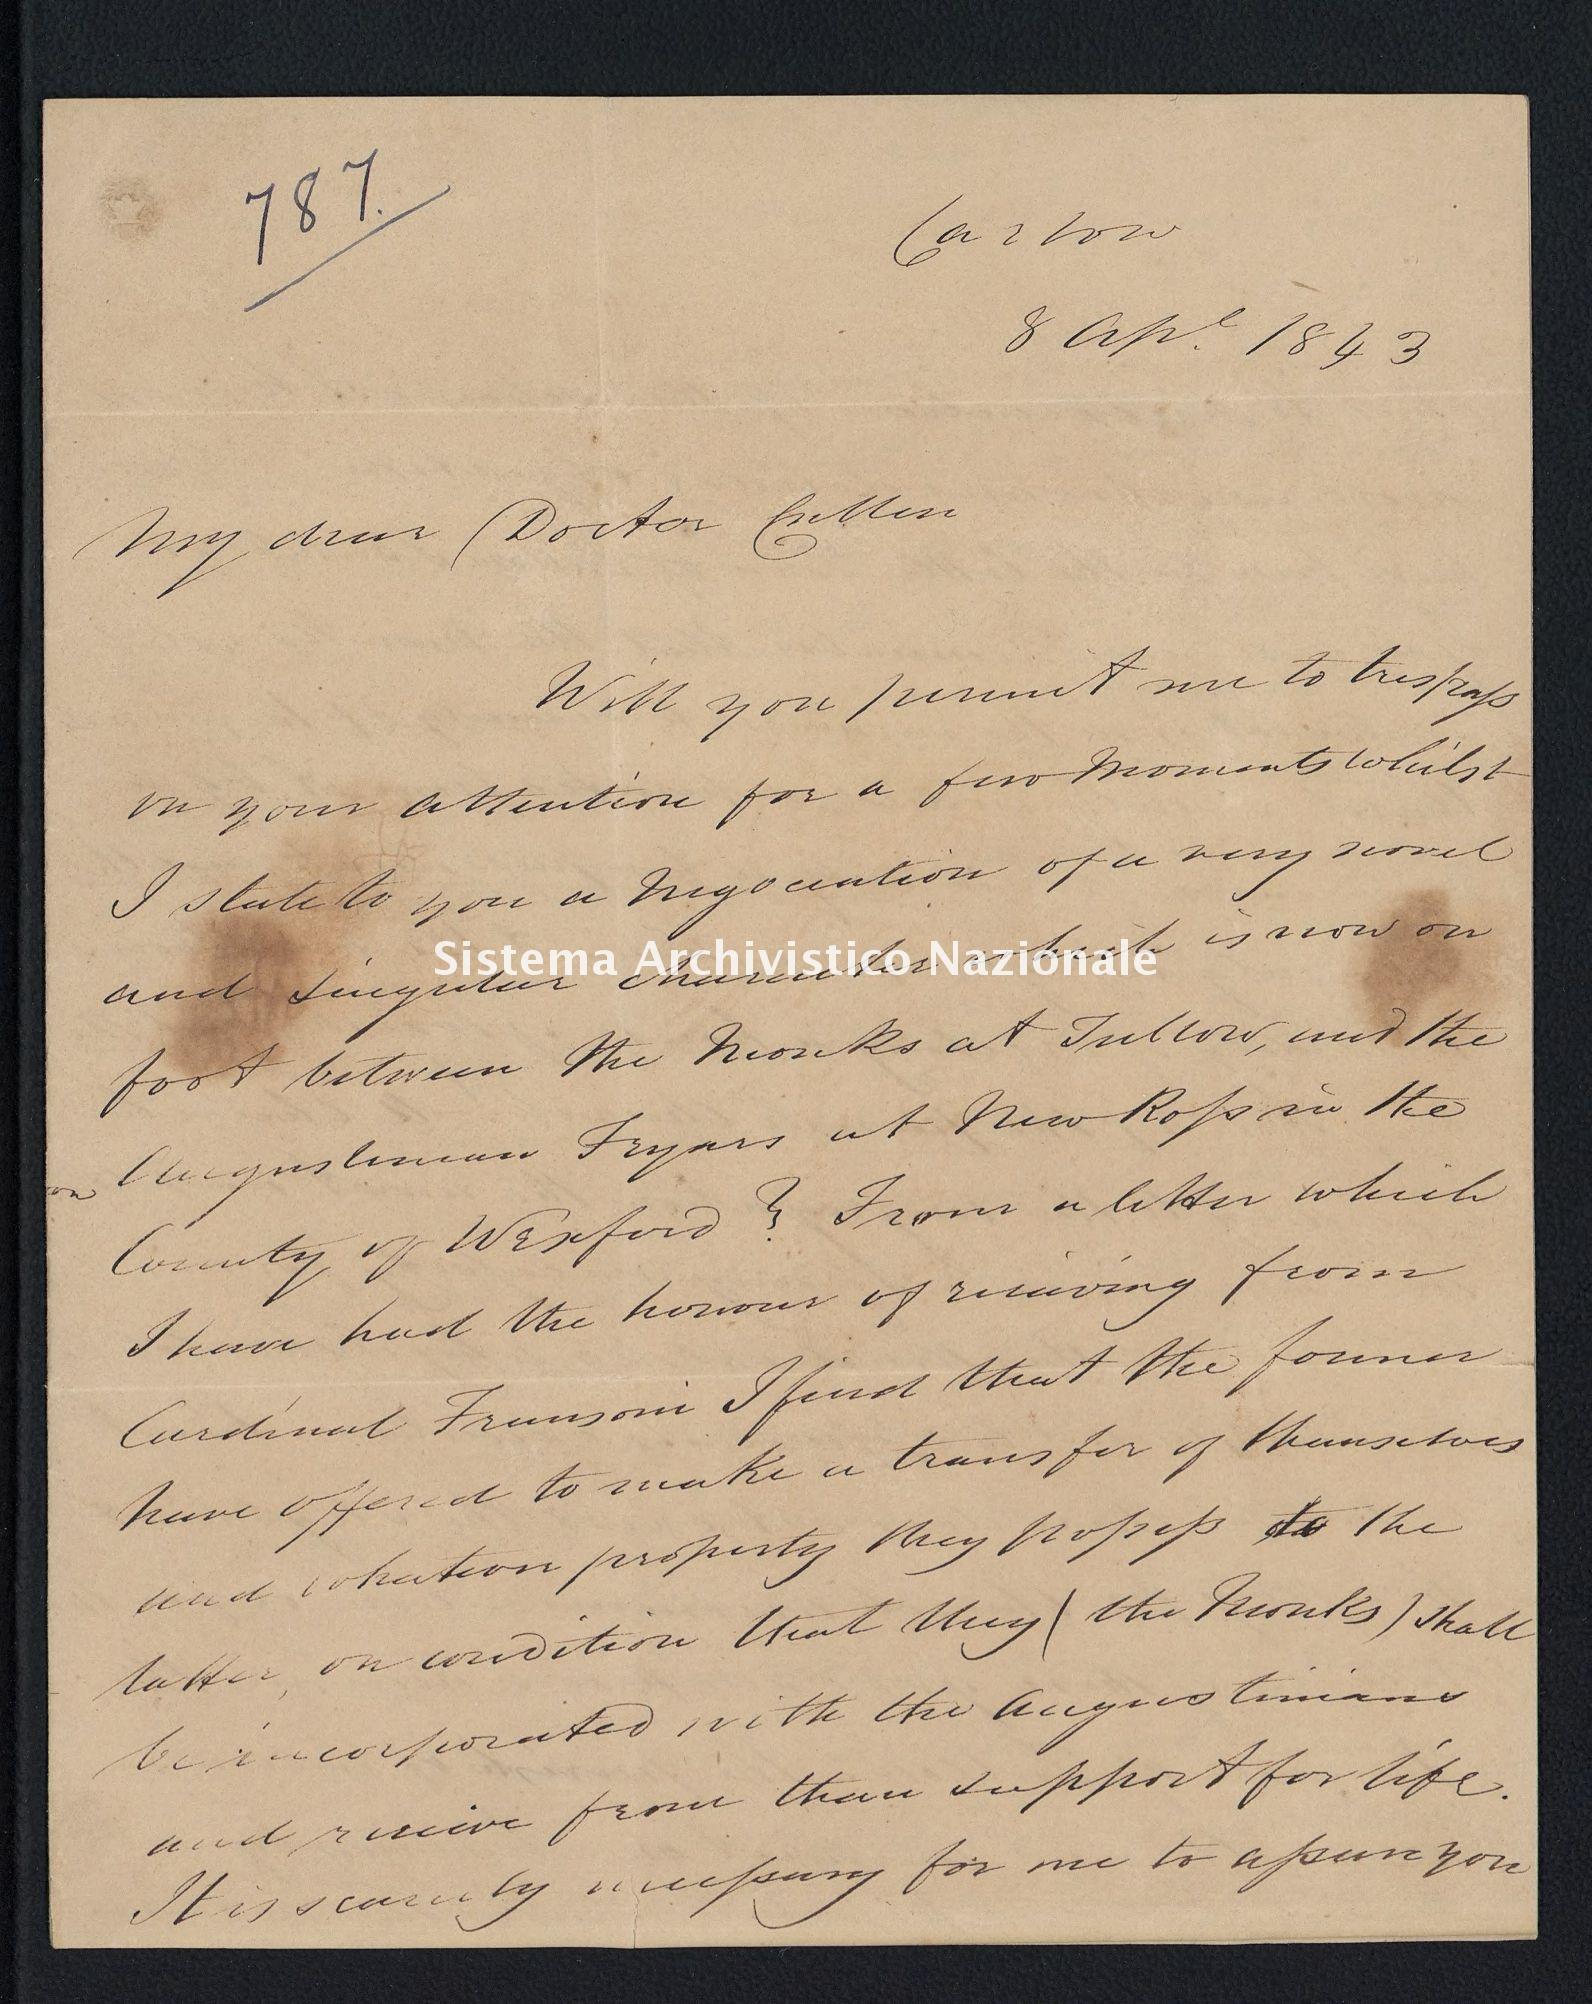 787.
Carlow
8 Apl. 1843
My dear Doctor Cullen
Will you permit me to trespass
on your attention for a few Moments whilst
I state to you a Negociation of a very novel
and singular character which is now on
Sistema Archivistico Nazionale
foot between the Monks at Tullow, and the
Augustinian Fryars at New Ross in the
County of Wexford? From a letter which
I have had the honour of receiving from
Cardinal Fransoni I find that the former
have offered to make a transfer of themselves
and whatever property they possess to the
latter, on condition that they (the Monks) shall
be incorporated with the Augustinians
and receive from them support for life.
It is scarcely necessary for me to assure you